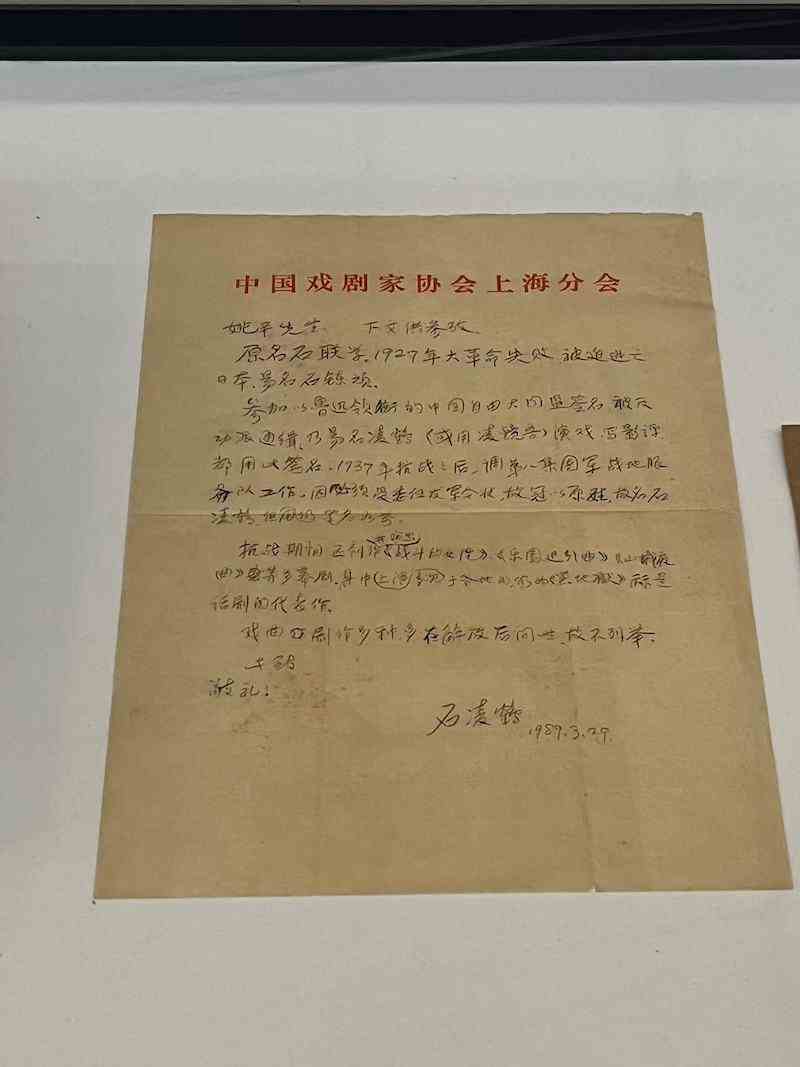 中国戏剧家协会上海分会
姚平先生 下文供参考
原名石联学,1927年大革命失败 被迫逃亡
日本,易名石炼顽。
参加以鲁迅领衔的中国自由大同盟签名 被反
动派通缉,乃易名凌鹤(或用凌 )演戏、写影评
都用此签名。1937年抗战之后,调第八集团军战地服
务队工作,因 须是委任 军令状,故冠以原姓,故名石
凌鹤
抗战期间 创作 《战斗的女性》、《乐园进行曲》《山城夜
曲》等多幕剧,其中 于各地 的《黑地狱》 是
话剧的代表作。
戏曲 剧 多种,多在解放后问世,故不列举。
敬礼!
石凌鹤
1989.3.29.